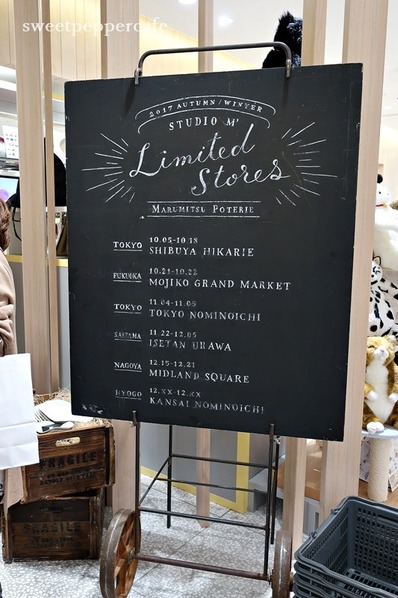 sweetpeppercafe
2017 AUTUMN / WINTER
STUDIO M'
Limited
Stores
MARUMITSU POTERIE
TOKYO 10.05-10.18
SHIBUYA HIKARIE
FUKUOKA 10.21-10.22
MOJIKO GRAND MARKET
TOKYO 11.04-11.05
TOKYO NOMINOICHI
SAITAMA 11.22-12.05
ISETAN URAWA
NAGOYA 12.15-12.21
MIDLAND SQUARE
HYOGO 12.XX-12.XX
KANSAI NOMINOICHI
FRAGILE